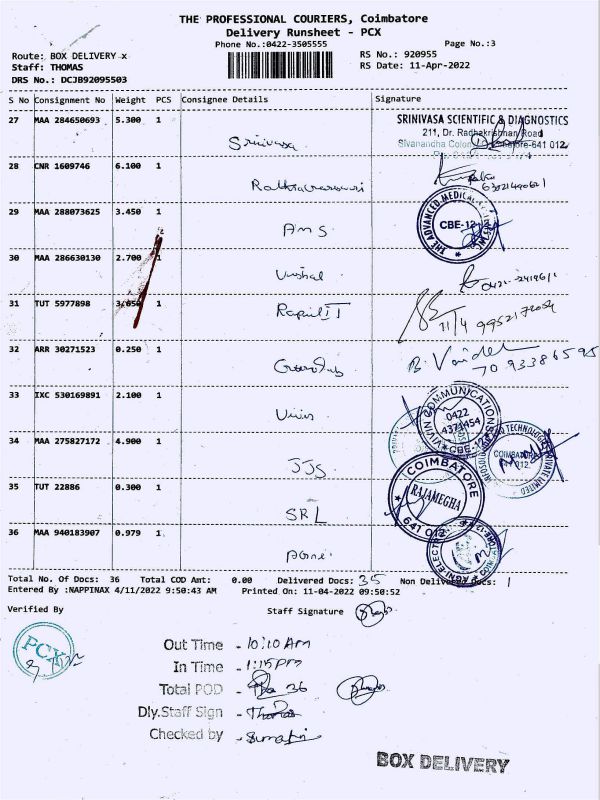 THE PROFESSIONAL COURIERS, Coimbatore
Delivery Runsheet - PCX
Phone No.:0422-3505555 Page No.:3
Route: BOX DELIVERY x RS No.: 920955
Staff: THOMAS RS Date: 11-Apr-2022
DRS No.: DCJB92095503
S No Consignment No Weight PCS Consignee Details Signature
27 MAA 284650693 5.300 1 Srinivasa
SRINIVASA SCIENTIFIC & DIAGNOSTICS
211, Dr. Radhakrishnan Road
28 CNR 1609746 6.100 1
29 MAA 288073625 3.450 1 AMS
THE ADVANCED MEDICAL CBE-12
30 MAA 286630130 2.700 1 Vishal
0421-2419611
31 TUT 5977898 3.050 1
11/4 9952172054
32 ARR 30271523 0.250 1
33 IXC 530169891 2.100 1 Vivin
VIVIN COMMUNICATIONS 0422 4371454 CBE-12
34 MAA 275827172 4.900 1 JJS
35 TUT 22886 0.300 1 SRL
COIMBATORE RAJAMEGHA 641 012
36 MAA 940183907 0.979 1 Agni
Total No. Of Docs: 36 Total COD Amt: 0.00 Delivered Docs: 35 Non Delivered Docs: 1
Entered By :NAPPINAX 4/11/2022 9:50:43 AM Printed On: 11-04-2022 09:50:52
Verified By Staff Signature
PCX
Out Time - 10:10 AM
In Time - 1:15 PM
Total POD - 36
Dly.Staff Sign - Thomas
Checked by -
BOX DELIVERY